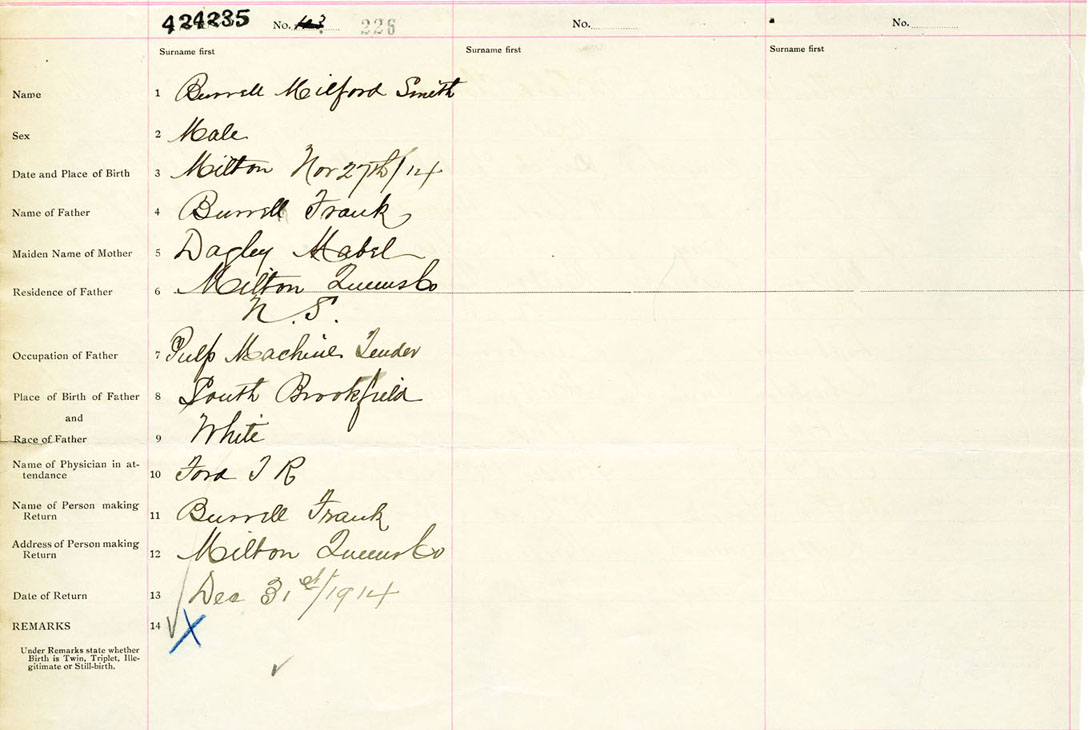 424235 No. 226 No. No.
Surname first Surname first Surname first
Name 1 Burrell Milford Smith
Sex 2 Male
Date and Place of Birth 3 Milton Nov 27th/14
Name of Father 4 Burrell Frank
Maiden Name of Mother 5 Dagley Mabel
Residence of Father 6 Milton Queens Co
N.S.
Occupation of Father 7 Pulp Machine Tender
Place of Birth of Father 8 South Brookfield
and
Race of Father 9 White
Name of Physician in at-
tendance 10 Ford T R
Name of Person making
Return 11 Burrell Frank
Address of Person making
Return 12 Milton Queens Co
Date of Return 13 Dec 31st/1914
REMARKS 14 X
Under Remarks state whether
Birth is Twin, Triplet, Ille-
gitimate or Still-birth.